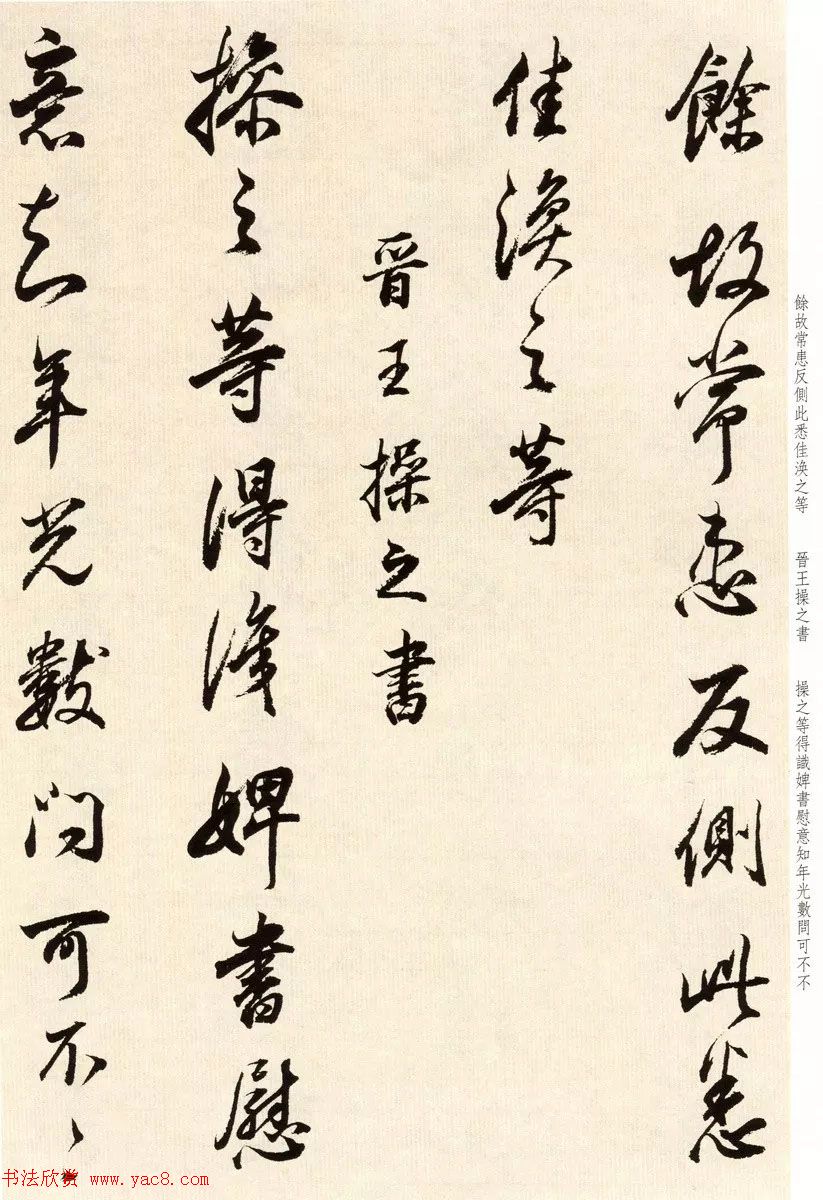 餘故常患反側此悉
佳渙之等
晉王操之書
操之等得識婢書慰
意知年光數問可不〻
餘故常患反側此悉佳渙之等　晉王操之書　操之等得識婢書慰意知年光數問可不不
书法欣赏 www.yac8.com